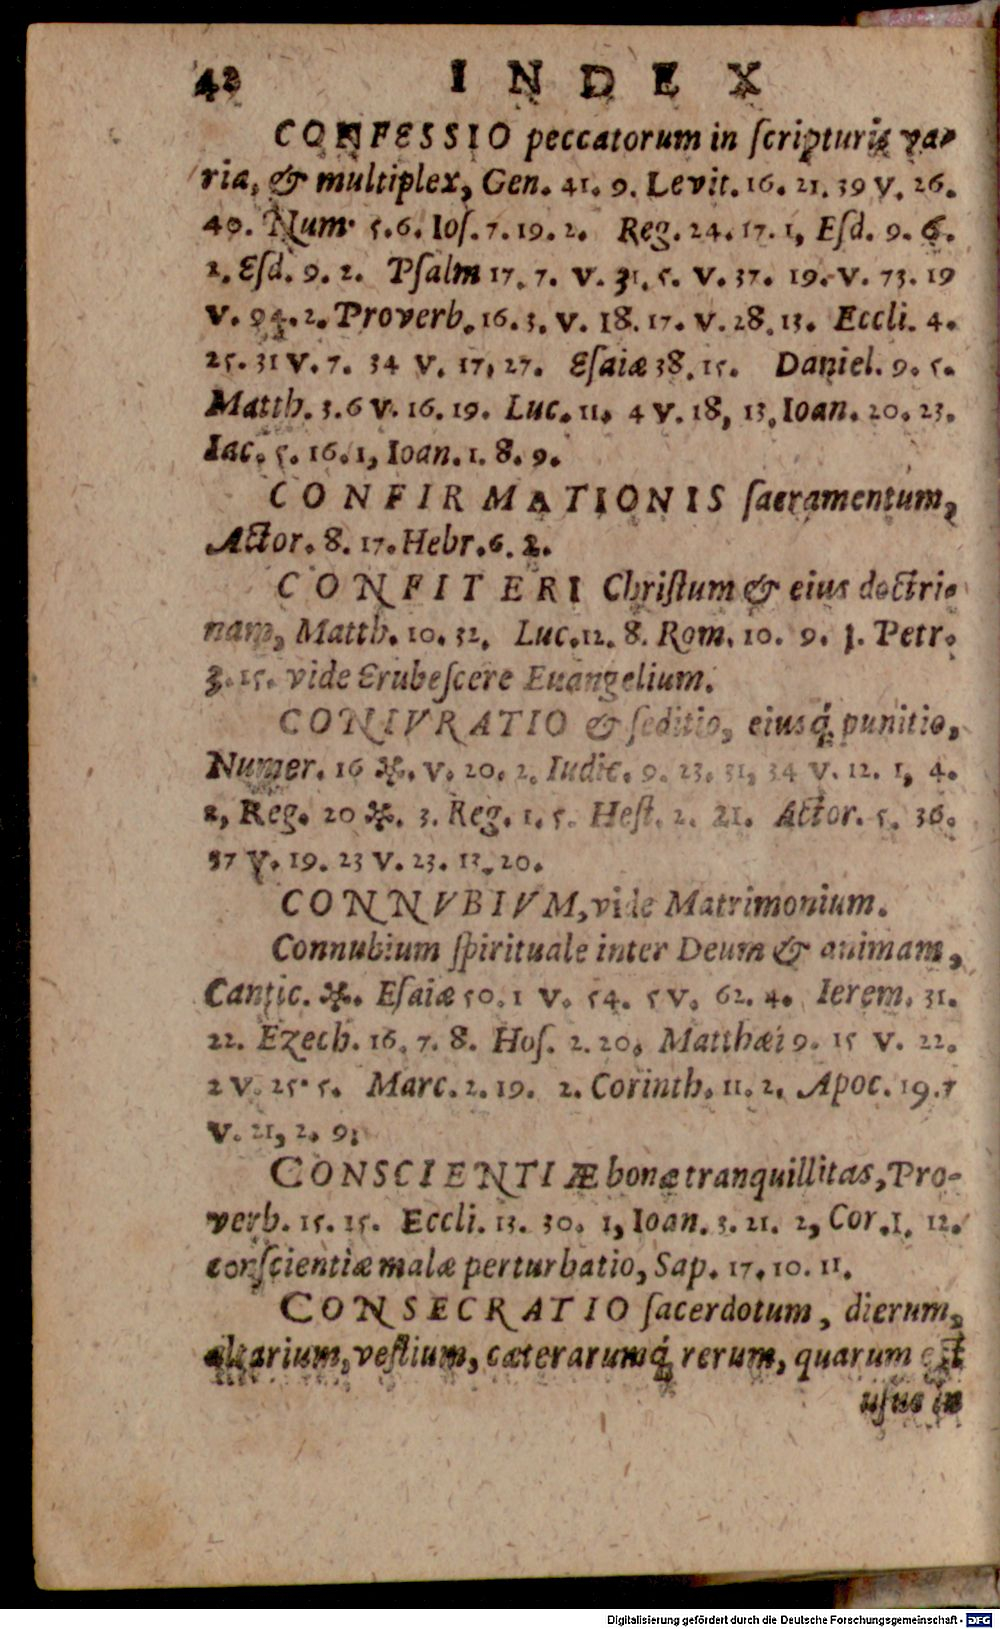 42 INDEX
CONFESSIO peccatorum in ſcripturis va-
ria, & multiplex, Gen. 41. 9. Levit. 16. 21. 39 v. 26.
40. Num. 5. 6. Ioſ. 7. 19. 2. Reg. 24. 17. 1, Eſd. 9. 6.
2. Eſd. 9. 2. Pſalm 17. 7. v. 31. 5. v. 37. 19. v. 73. 19
v. 94. 2. Proverb. 16. 3. v. 18. 17. v. 28. 13. Eccli. 4.
25. 31 v. 7. 34 v. 17, 27. Eſaiæ 38. 15. Daniel. 9. 5.
Matth. 3. 6 v. 16. 19. Luc. 11. 4 v. 18, 13. Ioan. 20. 23.
Iac. 5. 16. 1, Ioan. 1. 8. 9.
CONFIRMATIONIS ſacramentum,
Actor. 8. 17. Hebr. 6. 2.
CONFITERI Chriſtum & eius doctri-
nam, Matth. 10. 32. Luc. 12. 8. Rom. 10. 9. 1. Petr.
3. 15. vide Erubeſcere Euangelium.
CONIVRATIO & ſeditio, eiusq́; punitio,
Numer. 16 ✻. v. 20. 2. Iudic. 9. 23. 31, 34 v. 12. 1, 4.
2, Reg. 20 ✻. 3. Reg. 1. 5. Heſt. 2. 21. Actor. 5. 36.
37 v. 19. 23 v. 23. 12. 20.
CONNVBIVM, vide Matrimonium.
Connubium ſpirituale inter Deum & animam,
Cantic. ✻. Eſaiæ 50. 1 v. 54. 5 v. 62. 4. Ierem. 31.
22. Ezech. 16. 7. 8. Hoſ. 2. 20. Matthæi 9. 15 v. 22.
2 v. 25. 5. Marc. 2. 19. 2. Corinth. 11. 2. Apoc. 19. 7
v. 21, 2. 9.
CONSCIENTIÆ bonæ tranquillitas, Pro-
verb. 15. 15. Eccli. 13. 30. 1, Ioan. 3. 21. 2, Cor. 1. 12.
conſcientiæ malæ perturbatio, Sap. 17. 10. 11.
CONSECRATIO ſacerdotum, dierum,
altarium, veſtium, cæterarumq́; rerum, quarum eſt
uſus in
Digitalisierung gefördert durch die Deutsche Forschungsgemeinschaft - DFG